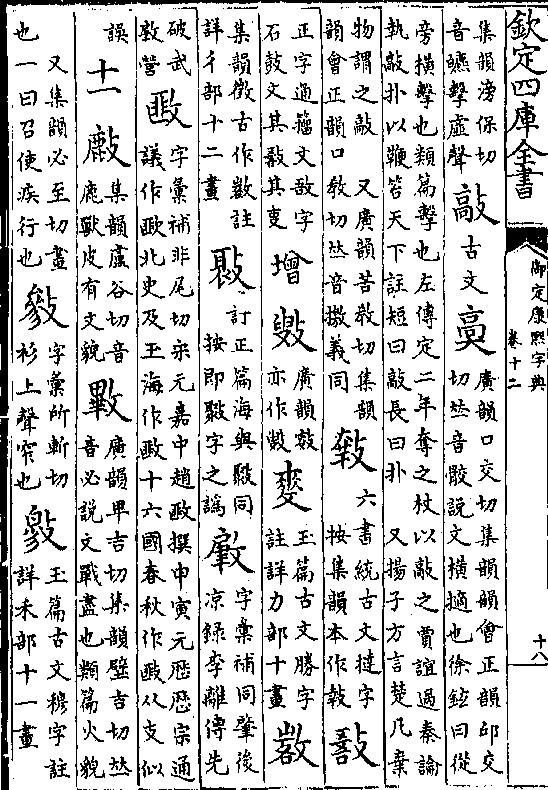 欽定四庫全書
御定康熙字典
卷十二
十八
集韻滂保切
音皫擊虛聲
敲
古文
廣韻口交切集韻韻會正韻丘交
切𠀤音骹說文橫擿也徐鉉曰從
旁橫擊也類篇擊也左傳定二年奪之杖以敲之賈誼過秦論
執敲扑以鞭笞天下註短曰敲長曰扑 又揚子方言楚凡棄
物謂之敲 又廣韻苦敎切集韻
韻會正韻口敎切𠀤音撽義同
六書統古文撻字
按集韻本作
正字通籀文敔字
石鼓文其其
增
廣韻敹
亦作
玉篇古文勝字
註詳力部十畫
集韻徵古作註
詳彳部十二畫
訂正篇海與毆同
按即毆字之譌
字彙補同肇後
凉錄李離傳先
破武
敎營
字彙補非尾切宋元嘉中趙撰甲寅元歴歴宗通
議作北史及玉海作十六國春秋作从支似
誤
十一
集韻盧谷切音
鹿獸皮有文貌
㪤
廣韻畢吉切集韻壁吉切𠀤
音必說文㪤盡也類篇火貌
又集韻必至切盡
也一曰召使疾行也
字彙所斬切
衫上聲窄也
玉篇古文穆字註
詳禾部十一畫